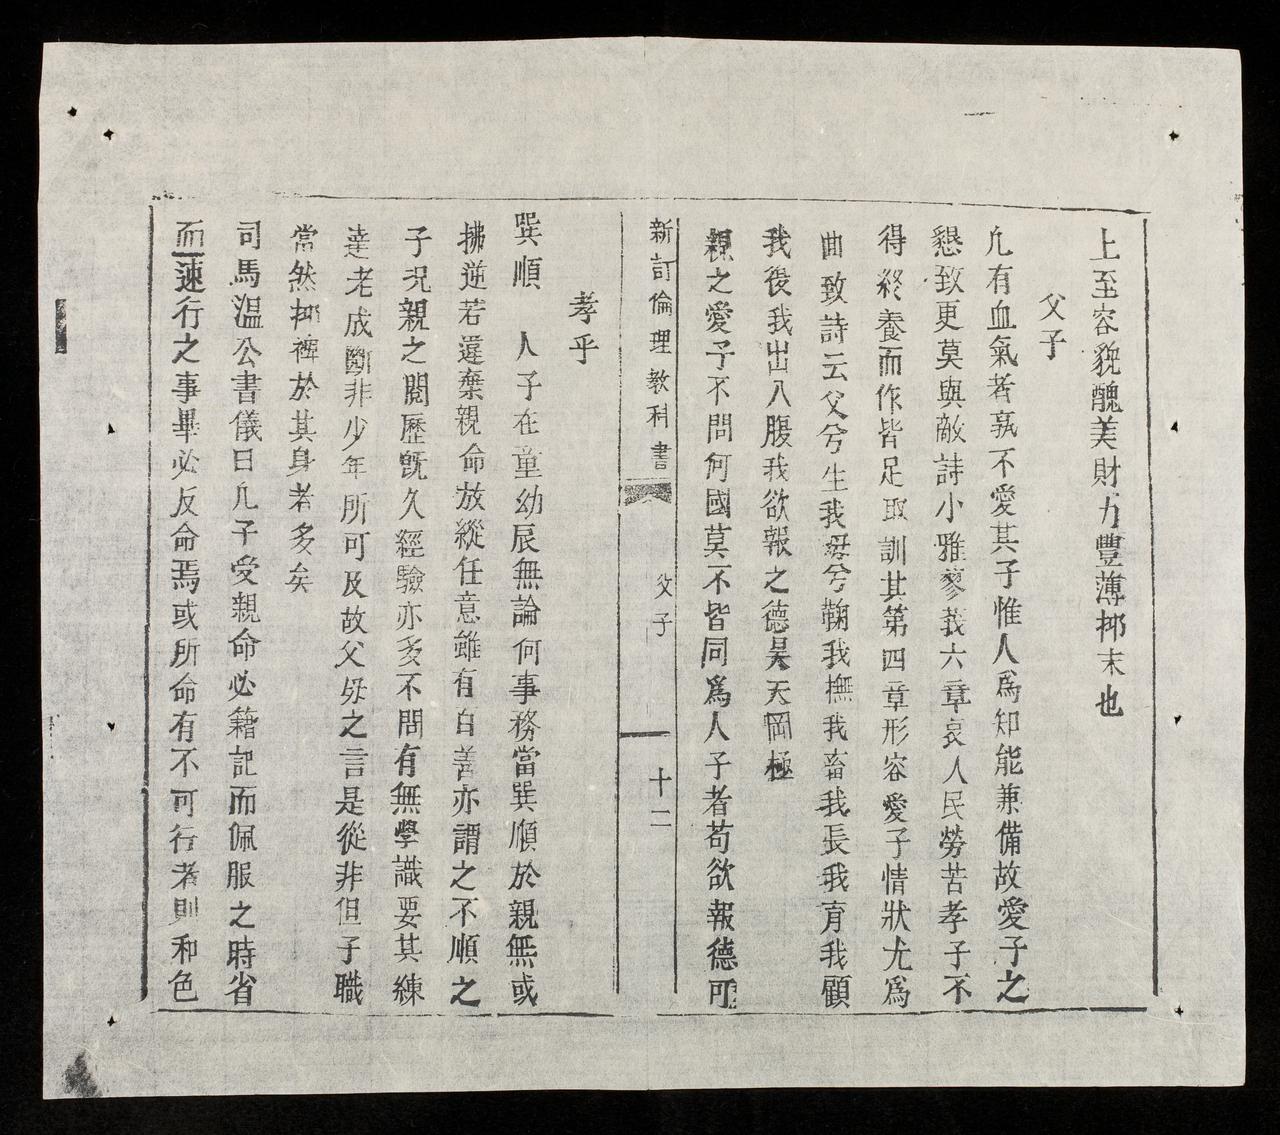 上至容貌醜美財力豐薄抑末也
父子
凢有血氣者孰不愛其子惟人爲知能兼備故愛子之
懇致更莫與敵詩小雅蓼莪六章哀人民勞苦孝子不
得終養而作皆足取訓其第四章形容愛子情狀尤爲
曲致詩云父兮生我母兮鞠我撫我畜我長我育我顧
我復我出入腹我欲報之德昊天罔極
親之愛子不問何國莫不皆同爲人子者苟欲報德可
新訂倫理教科書 父子 十二
孝乎
巽順 人子在童幼辰無論何事務當巽順於親無或
拂逆若違棄親命放縱任意雖有白善亦謂之不順之
子况親之閱歷旣久經驗亦多不問有無學識要其練
達老成斷非少年所可及故父母之言是從非但子職
當然抑裨於其身者多矣
司馬溫公書儀曰凢子受親命必籍記而佩服之時省
而速行之事畢必反命焉或所命有不可行者則和色